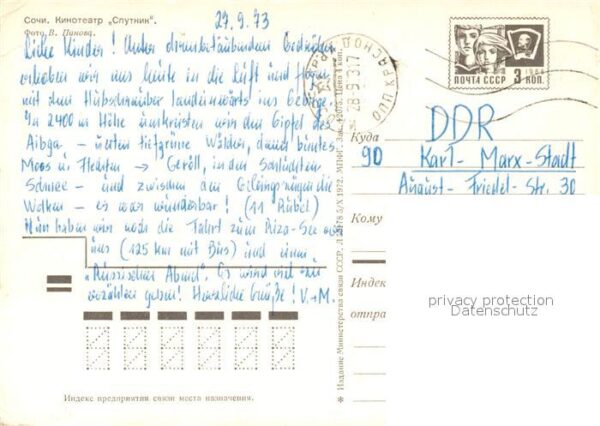 Сочи. Кинотеатр „Спутник".
Фото В. Панова.
27.9.73
Liebe Kinder! Unter ohrenbetäubendem Getöse
erhoben wir uns heute in die Luft und flogen
mit dem Hubschrauber landeinwärts ins Gebirge.
In 2400 m Höhe umkreisten wir den Gipfel des
Aibga – unten tiefgrüne Wälder, dann buntes
Moos u. Flechten → Geröll, in den Schluchten
Schnee – und zwischen den die
Wolken – es war wunderbar! (11 Rubel)
Nun haben wir noch die Fahrt zum Riza-See vor
uns (125 km mit Bus) und einen
„Russischen Abend". Es wird viel zu
erzählen geben! Herzliche Grüße! V.+M.
Индекс предприятия связи места назначения.
* Издание Министерства связи СССР. 5/X 1972. МПФГ. Зак. Цена 4 коп.
28 9 73 17
ПОЧТА СССР 3 КОП.
1966
Куда
DDR
90 Karl-Marx-Stadt
August-Friedel-Str. 30
Кому
Индек
отпра
privacy protection
Datenschutz